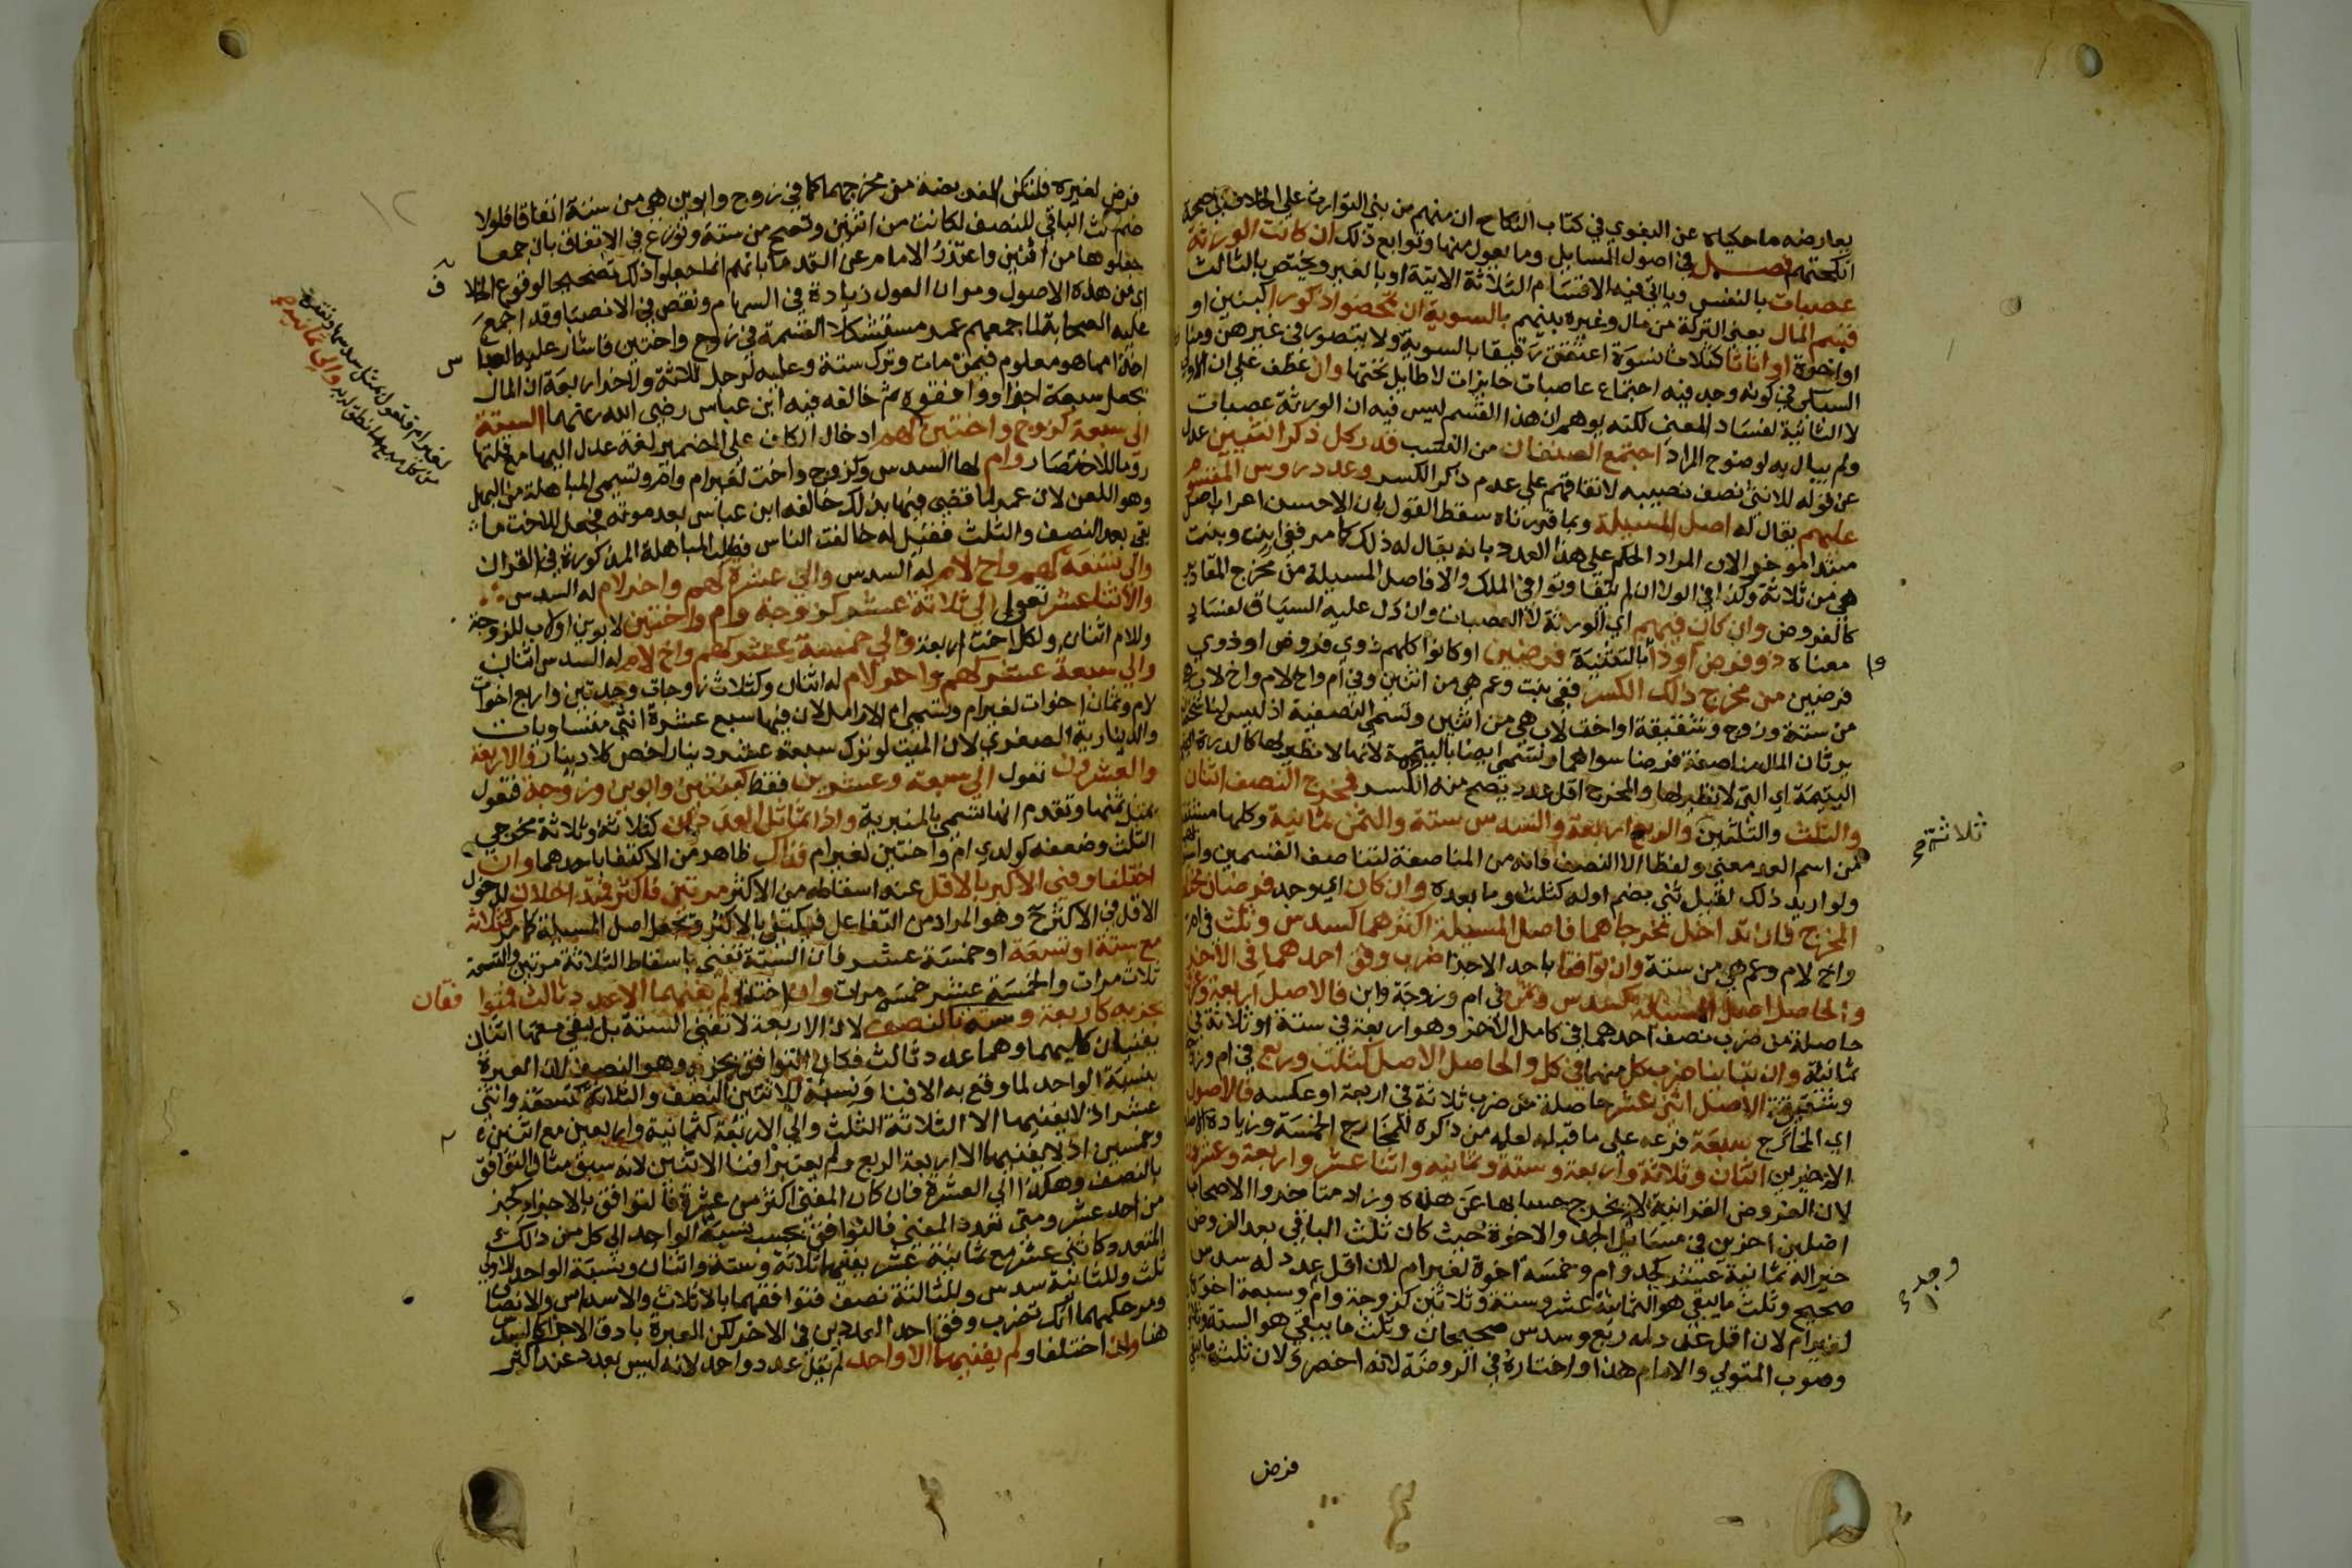 يعارضه ما حكياه عن البغوي في كتاب النكاح ان منهم من بنى التوارث على الخلاف في صحة
انكحتهم فصـــل في اصول المسايل وما يعول منها وتوابع ذلك ان كانت الورثة
عصبات بالنفس وياتي فيه الاقسام الثلاثة الاتية او بالغير ويختص بالثالث
قسم المال يعني التركة من مال وغيره بينهم بالسوية ان تمحضوا ذكورا كبنين او
او اخوة او اناثا كثلاث نسوة اعتقن رقيقا بالسوية ولا يتصور في غيرهن ومنا
السبكي في كونه وجد فيه اجتماع عاصبات حايزات لا طايل تحتها وان عطف على ان الاولى
لا الثانية لفساد المعنى لكنه يوهم ان هذا القسم ليس فيه ان الورثة عصبات
ولم يبال به لوضوح المراد اجتمع الصنفان من النسب قدر كل ذكر انثيين عدل
عن قوله للانثى نصف نصيبه لاتفاقهم على عدم ذكر الكسر وعدد روس المقسوم
عليهم يقال له اصل المسيلة وبما قررناه سقط القول بان الاحسن اعراب اصل
مبتدا موخر الان المراد الحكم على هذا العدد بانه يقال له ذلك كما مر ففي ابن وبنت
هي من ثلاثة وكذا في الولا ان لم يتفاوتوا في الملك والا فاصل المسيلة من مخرج المقادير
كالفروض وان كان فيهم اي الورثة لا العصبات وان دل عليه السياق لفساد
معناه ذو فرض او ذوا بالتثنية فرضين او كانوا كلهم ذوي فروض او ذوي
فرضين من مخرج ذلك الكسر ففي بنت وعم هي من اثنين وفي ام واخ لام واخ لاب هي
من ستة وزوج وشقيقة او اخت لاب هي من اثنين وتسمى النصفية اذ ليس لنا شخصان
يرثان المال مناصفة فرضا سواهما وتسمى ايضا باليتيمة لانها لا نظير لها كالدرة
اليتيمة اي التي لا نظير لها والمخرج اقل عدد يصح منه الكسر فمخرج النصف اثنان
والثلث والثلثين والربع اربعة والسدس ستة والثمن ثمانية وكلها مشتقة
ثلاثة صح
من اسم العدد معنى ولفظا الا النصف فانه من المناصفة لتناصف القسمين واستوايهما
ولو اريد ذلك لقيل ثني بضم اوله كثلث وما بعده وان كان اي وجد فرضان مختلفا
المخرج فان تداخل مخرجاهما فاصل المسيلة اكثرهما كسدس وثلث في ام
واخ لام وعم هي من ستة وان توافقا باحد الاجزا ضرب وفق احدهما في الاخر
والحاصل اصل المسيلة كسدس وثمن في ام وزوجة وابن فالاصل اربعة وعشرون
حاصلة من ضرب نصف احدهما في كامل الاخر وهو اربعة في ستة او ثلاثة في
ثمانية وان تباينا ضرب كل منهما في كل والحاصل الاصل كثلث وربع في ام وزوجة
وشقيقة الاصل اثني عشر حاصلة من ضرب ثلاثة في اربعة او عكسه فالاصول
اي المخارج سبعة فرعه على ما قبله لعله من ذكره للمخارج الخمسة وزيادة الاصلين
الاخيرين اثنان وثلاثة واربعة وستة وثمانية واثنا عشر واربعة وعشرون
لان الفروض القرانية لا يخرج حسابها عن هذه وزاد متاخروا الاصحاب
اصلين اخرين في مسايل الجد والاخوة حيث كان ثلث الباقي بعد الفروض
خيرا له ثمانية عشر كجد وام وخمسة اخوة لغير ام لان اقل عدد له سدس
صحيح وثلث ما يبقى هو الثمانية عشر وستة وثلاثين كزوجة وام وسبعة اخوة
وجد صح
لغير ام لان اقل عدد له ربع وسدس صحيحان وثلث ما يبقى هو الستة وثلاثون
وصوب المتولي والامام هذا واختاره في الروضة لانه اخصر ولان ثلث ما يبقى
فرض
فرض لغيره فلتكن الفريضة من مخرجهما كما في زوج وابوين هي من ستة اتفاقا فلولا
ضم ثلث الباقي للنصف لكانت من اثنين وتصح من ستة ونوزع في الاتفاق بان جمعا
جعلوها من اثنين واعتذر الامام عن القدما بانهم انما جعلوا ذلك تصحيحا لوقوع الخلا
اي من هذه الاصول ومر ان العول زيادة في السهام ونقص في الانصبا وقد اجمع
عليه الصحابة لما جمعهم عمر مستشكلا القسمة في زوج واختين فاشار عليه العبا
اخذا مما هو معلوم فيمن مات وترك ستة وعليه لرجل ثلاثة ولاخر اربعة ان المال
يجعل سبعة اجزا ووافقوه ثم خالفه فيه ابن عباس رضي الله عنهما الستة
الى سبعة كزوج واختين كهم ادخال الكاف على الضمير لغة عدل اليها مع قلتها
روما للاختصار وام لها السدس وكزوج واخت لغير ام وام وتسمى المباهلة من البهل
وهو اللعن لان عمر لما قضى فيها بذلك خالفه ابن عباس بعد موته فجعل للاخت ما
بقي بعد النصف والثلث فقيل له خالفت الناس فطلب المباهلة المذكورة في القران
والى تسعة كهم واخ لام له السدس والى عشرة كهم واخر لام له السدس
والاثنا عشر تعول الى ثلاثة عشر كزوجة وام واختين لابوين او لاب للزوجة
وللام اثنان ولكل اخت اربعة والى خمسة عشر كهم واخ لام له السدس اثنان
والى سبعة عشر كهم واخر لام له اثنان وكثلاث زوجات وجدتين واربع اخوات
لام وثمان اخوات لغير ام وتسمى ام الارامل لان فيها سبع عشرة انثى متساويات
والدينارية الصغرى لان الميت لو ترك سبعة عشر دينارا خص كلا دينار والاربعة
والعشرون تعول الى سبعة وعشرين فقط كبنتين وابوين وزوجة فتعول
بمثل ثمنها وتقدم انها تسمى بالمنبرية واذا تماثل العددان كثلاثة وثلاثة مخرجي
الثلث وضعفه كولدي ام واختين لغير ام فذاك ظاهر من الاكتفا باحدهما وان
اختلفا وفني الاكبر بالاقل عند اسقاطه من الاكثر مرتين فاكثر فمتداخلان لدخول
الاقل في الاكثر ح وهو المراد من التفاعل فيكتفي بالاكثر وتجعل اصل المسيلة كما مر كثلاثة
مع ستة او تسعة او خمسة عشر فان الستة تفنى باسقاط الثلاثة مرتين والتسعة
ثلاث مرات والخمسة عشر خمس مرات وان اختلفا ولم يفنهما الا عدد ثالث فمتوا فقان
بجزيه كاربعة وستة بالنصف لان الاربعة لا تفني الستة بل يبقى معها اثنان
يفنيان كليهما وهما عدد ثالث فكان التوافق بجزيه وهو النصف لان العبرة
بنسبة الواحد لما وقع به الافنا ونسبته للاثنين النصف والثلاثة كتسعة واثني
عشر اذ لا يفنيهما الا الثلاثة الثلث والى الاربعة كثمانية واربعين مع اثنين
وخمسين اذ لا يفنيهما الا اربعة الربع ولم يعتبر افنا الاثنين لانه سبق مثال التوافق
بالنصف وهكذا الى العشرة فان كان المفني اكثر من عشرة فالتوافق بالاجزا كجز
من احد عشر ومتى تعدد المفني فالتوافق بحسب نسبة الواحد الى كل من ذلك
المتعدد كاثني عشر مع ثمانية عشر يفنيهما ثلاثة وستة واثنان ونسبة الواحد للاولى
ثلث وللثانية سدس وللثالثة نصف فتوافقهما بالاثلاث والاسداس والانصا
ومر حكمهما انك تضرب وفق احد العددين في الاخر لكن العبرة بادق الاجزا كالسدس
هنا وان اختلفا ولم يفنهما الا واحد لم يقل عدد واحد لانه ليس بعدد عند اكثر